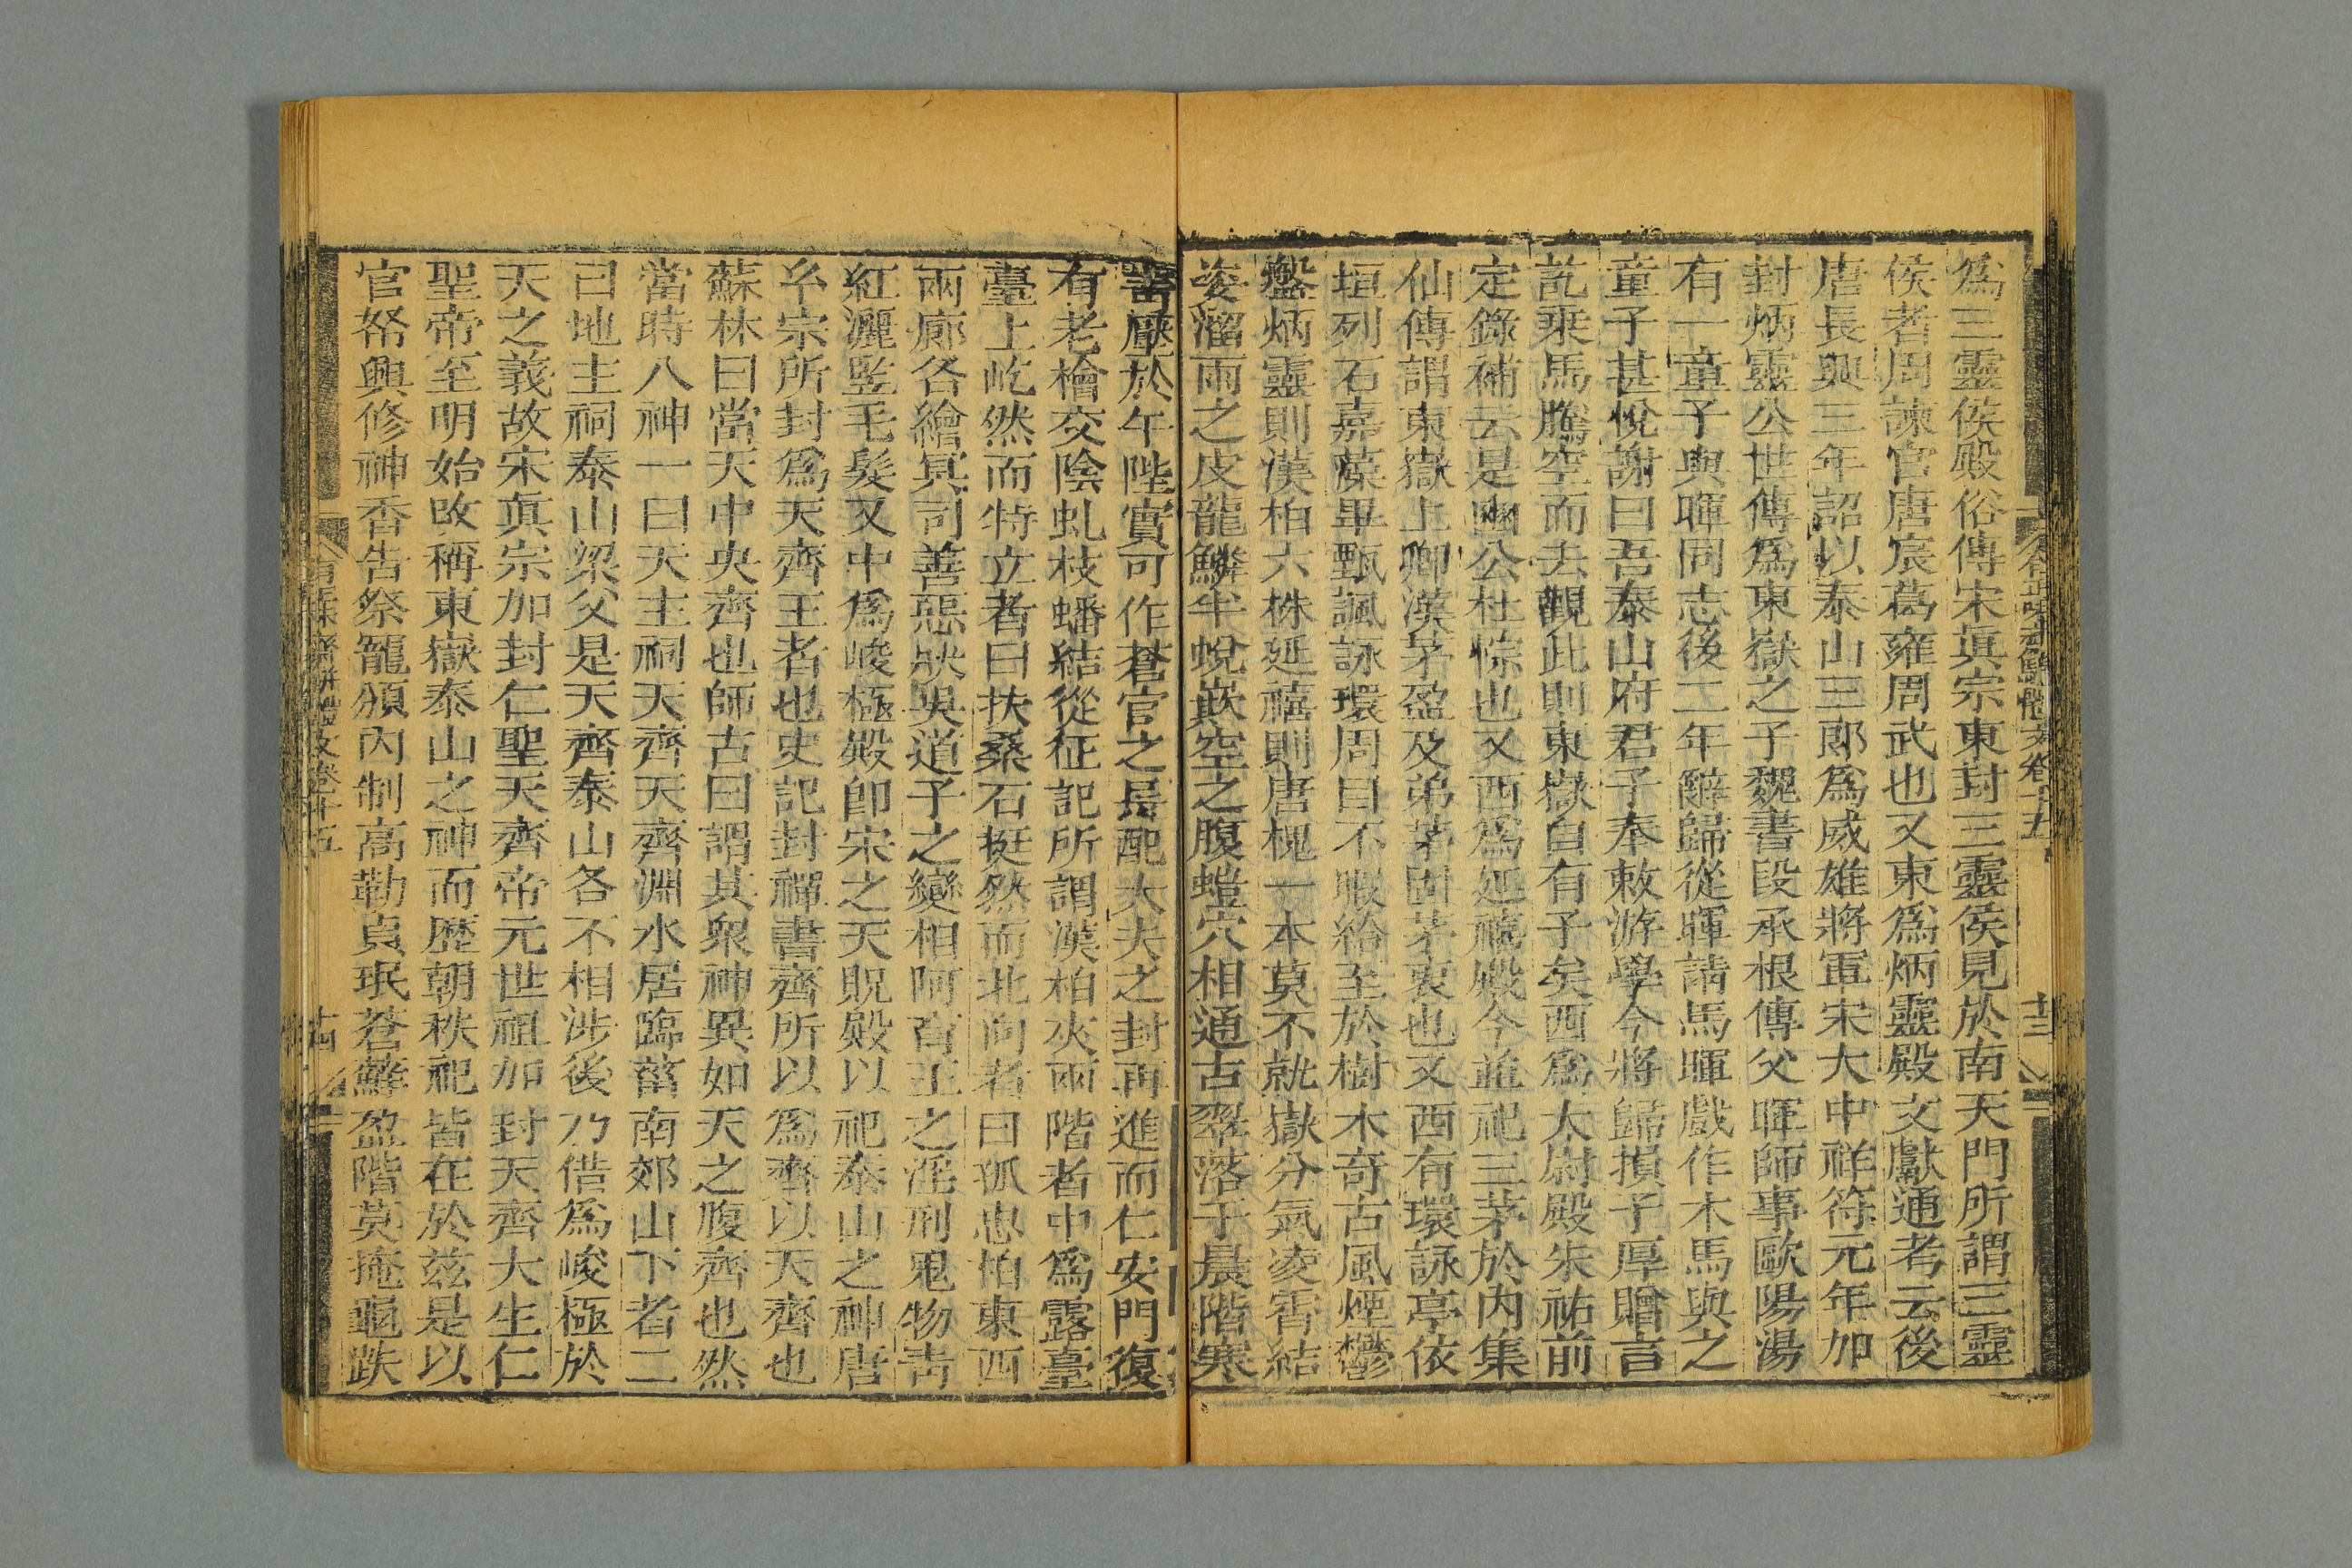 爲三靈侯殿俗傳宋眞宗東封三靈侯見於南天門所謂三靈
侯者周諫官唐宸葛雍周武也又東爲炳靈殿文獻通考云後
唐長興三年詔以泰山三郎爲威雄將軍宋大中祥符元年加
封炳靈公世傳爲東嶽之子魏書段承根傳父暉師事歐陽湯
有一童子與暉同志後二年辭歸從暉請馬暉戲作木馬與之
童子甚悅謝曰吾泰山府君子奉敕游學今將歸損子厚贈言
訖乘馬騰空而去觀此則東嶽自有子矣西爲太尉殿朱祐前
定錄補云是豳公杜悰也又西爲延禧殿今並祀三茅於內集
仙傳謂東嶽上卿漢茅盈及弟茅固茅衷也又西有環詠亭依
垣列石嘉藻畢甄諷詠環周目不暇給至於樹木奇古風煙鬱
盤炳靈則漢柏六株延禧則唐槐一本莫不就嶽分氣凌霄結
姿溜雨之皮龍鱗半蛻嵌空之腹螘穴相通古翠落于晨階寒
嵒壓於午陛實可作蒼官之長配大夫之封再進而仁安門復
有老檜交陰虬枝蟠結從征記所謂漢柏夾兩階者中爲露臺
臺上屹然而特立者曰扶桑石挺然而北向者曰孤忠柏東西
兩廊各繪冥司善惡狀吳道子之變相阿育王之淫刑鬼物靑
紅灑豎毛髮又中爲峻極殿卽宋之天貺殿以祀泰山之神唐
玄宗所封爲天齊王者也史記封禪書齊所以爲齊以天齊也
蘇林曰當天中央齊也師古曰謂其衆神異如天之腹齊也然
當時八神一曰天主祠天齊天齊淵水居臨菑南郊山下者二
曰地主祠泰山梁父是天齊泰山各不相涉後乃借爲峻極於
天之義故宋眞宗加封仁聖天齊帝元世祖加封天齊大生仁
聖帝至明始改稱東嶽泰山之神而歷朝秩祀皆在於兹是以
官帑興修神香告祭寵頒內制高勒貞珉蒼蘚盈階莫掩龜趺